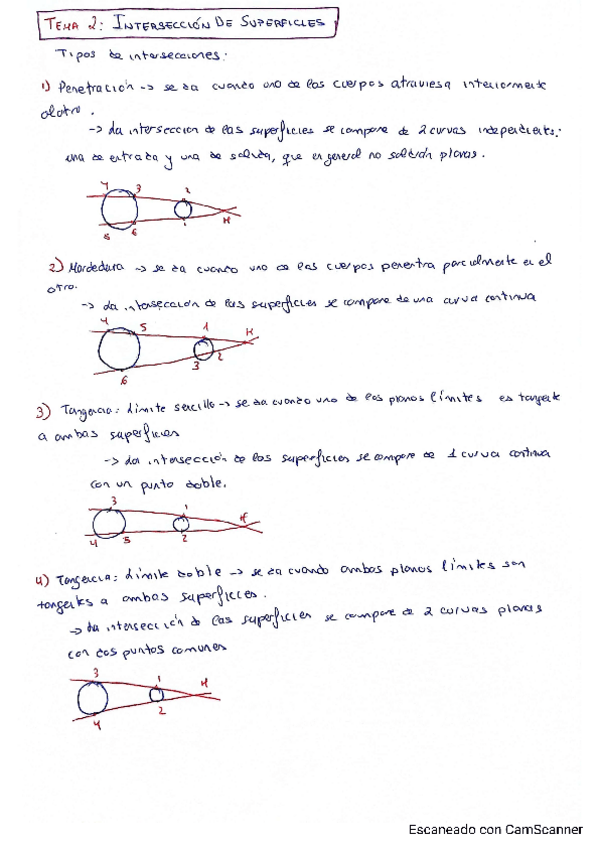 TEMA 2: INTERSECCIÓN DE SUPERFICIES
Tipos de intersecciones:
1) Penetración -> se da cuando uno de los cuerpos atraviesa interiormente
al otro.
-> La intersección de las superficies se compone de 2 curvas independients:
una de entrada y una de salida, que en general no saldrán planas.
4 3 2 1 H
5 6
2) Mordedura -> se da cuando uno de los cuerpos penentra parcialmente en el
otro.
-> La intersección de las superficies se compone de una curva continua
4 5 1 H
3 2
6
3) Tangencia: Límite sencillo -> se da cuando uno de los planos límites es tangente
a ambas superficies
-> La intersección de las superficies se compone de 1 curva continua
con un punto doble.
3 1 H
4 5 2
4) Tangencia: Límite doble -> se da cuando ambos planos límites son
tangentes a ambas superficies.
-> La intersección de las superficies se compone de 2 curvas planas
con dos puntos comunes
3 1 H
4 2
Escaneado con CamScanner